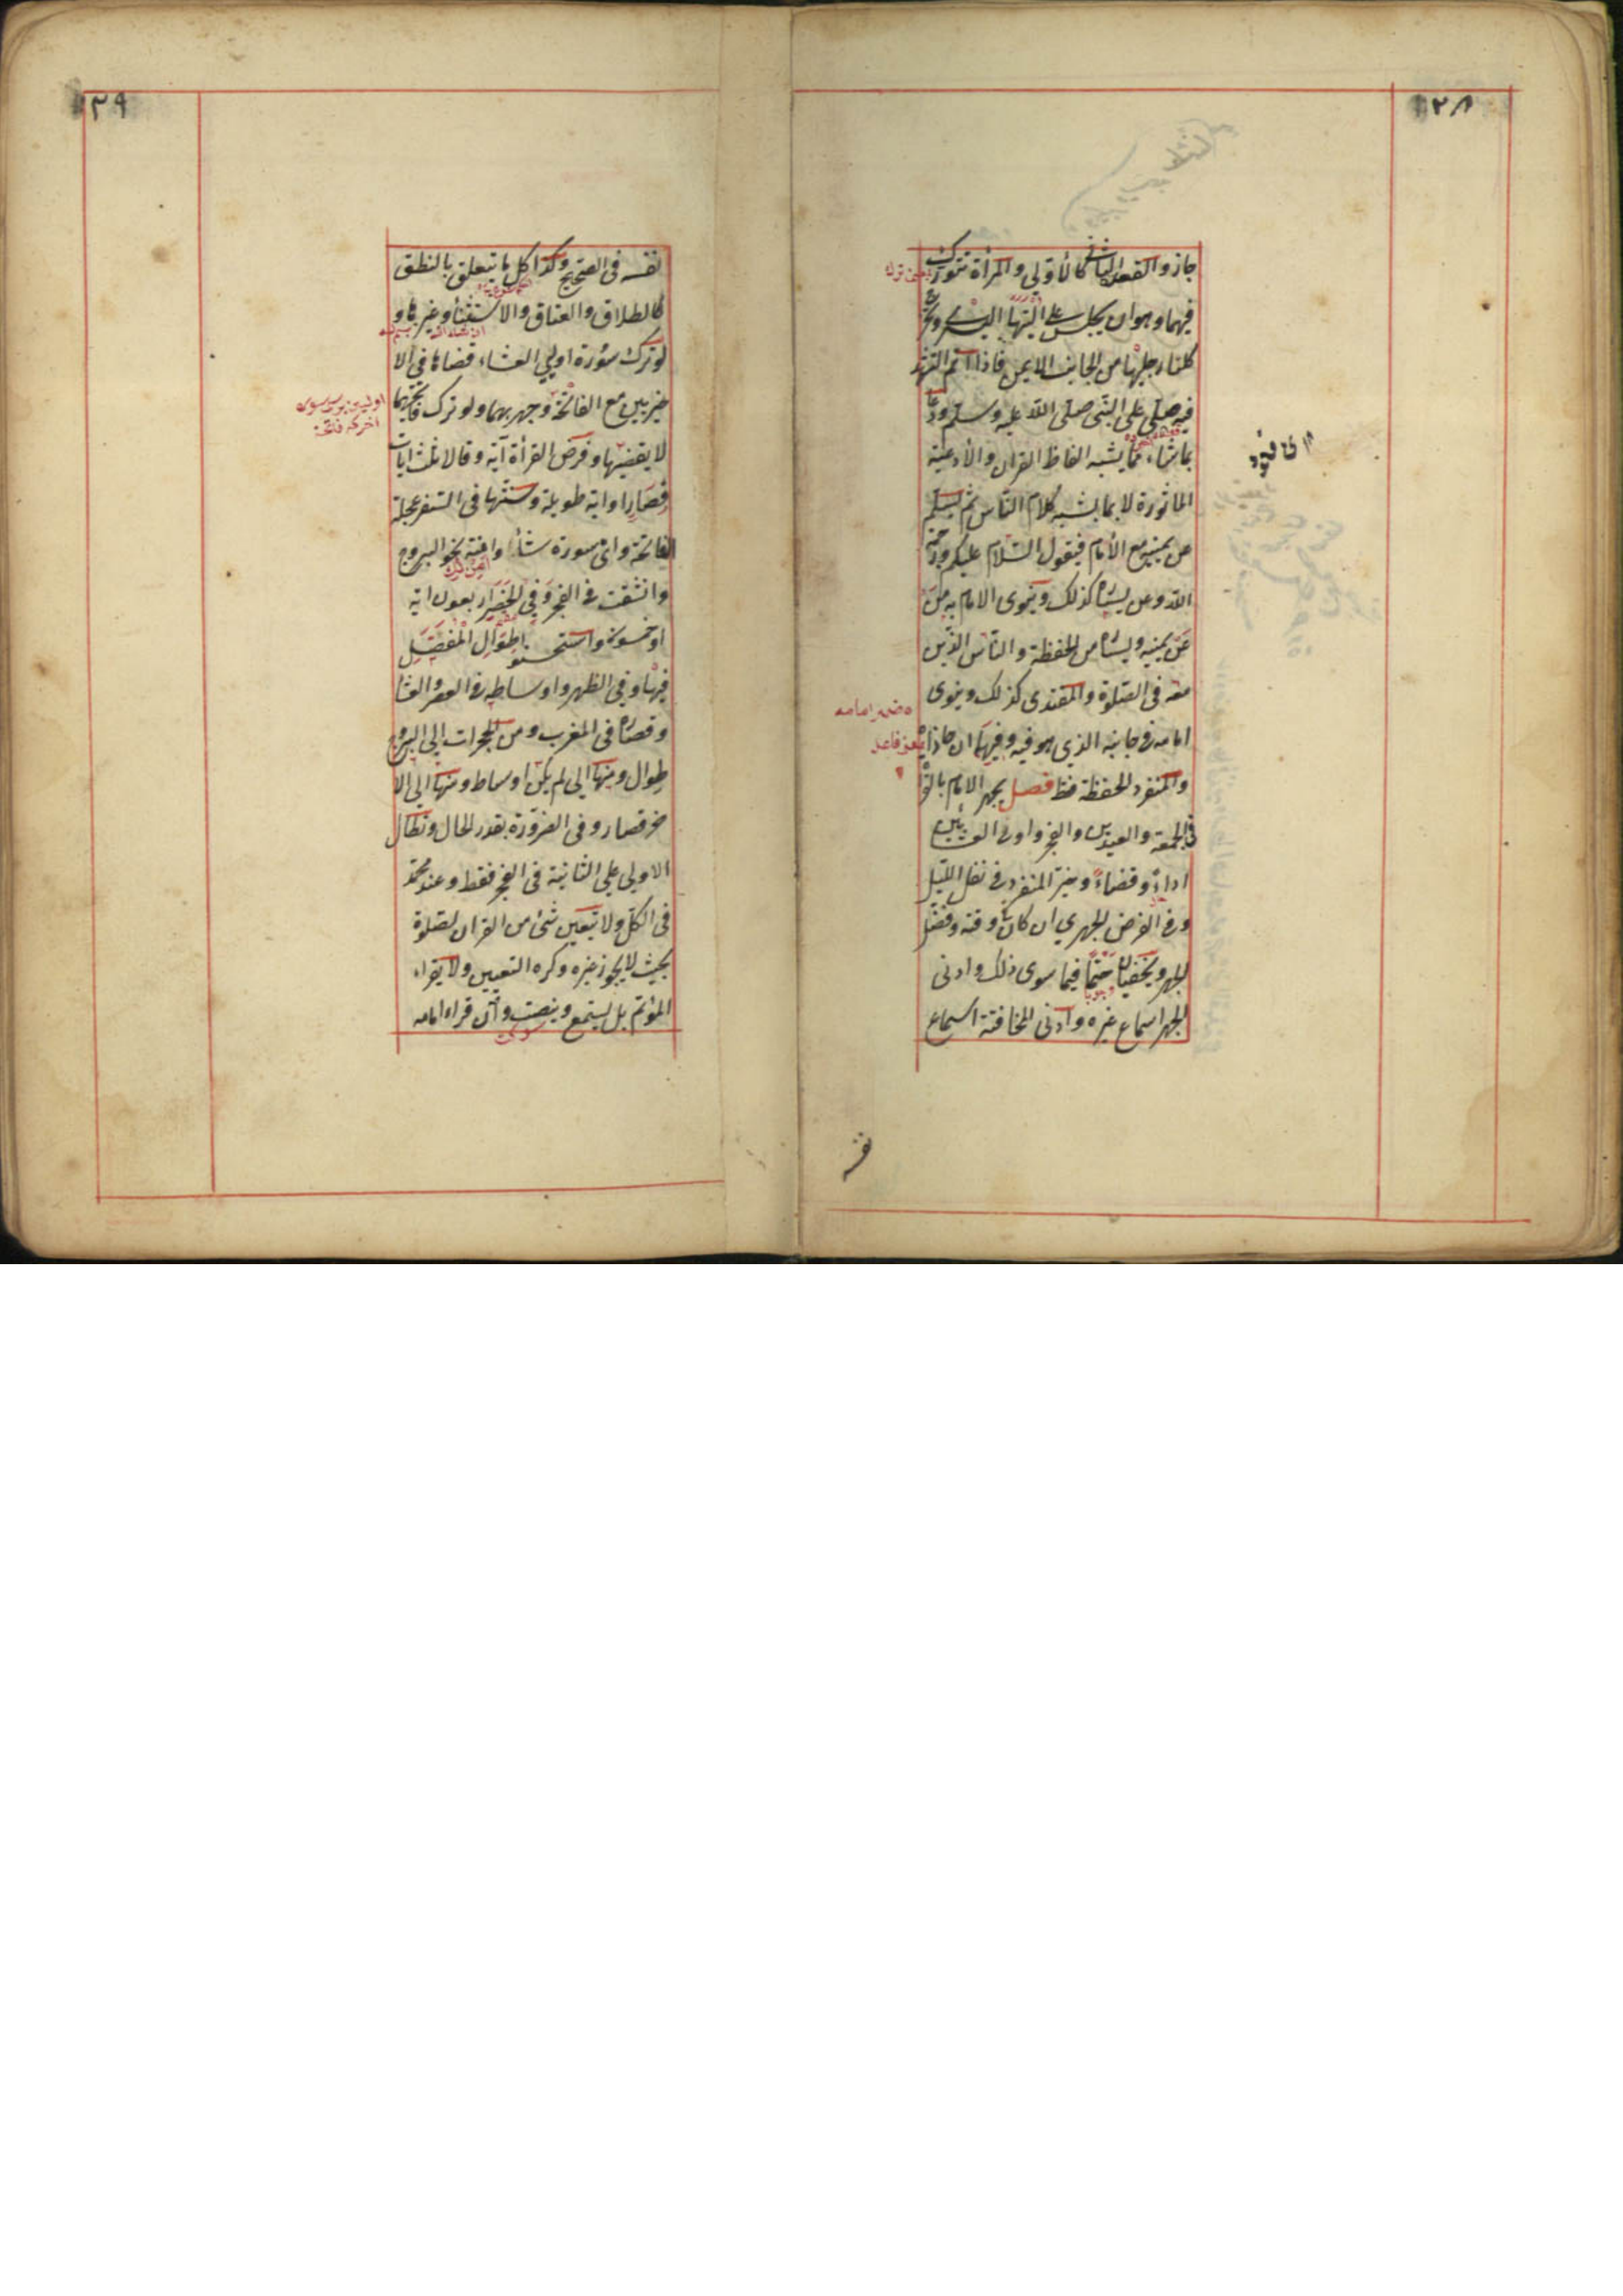 ٢٨
جاز والقعود الثاني كالأولى والمرأة تتورك
فيهما وهو ان يجلس على اليتها اليسرى وتخرج
كلتا رجليها من الجانب الايمن فاذا اتم التشهد
فيه صلى على النبى صلى الله عليه وسلم ودعا
بما شاء مما يشبه الفاظ القران والأدعية
الماثورة لا بما يشبه كلام الناس ثم يسلم
عن يمينه مع الأمام فيقول السلام عليكم ورحمة
الله وعن يساره كذلك وينوى الامام به من
عن يمينه ويساره من الحفظة والناس الذين
معه فى الصلوة والمقتدى كذلك وينوى
امامه فى جانبه الذي هو فيه وفيهما ان حاذاه
والمنفرد الحفظة فقط فصل يجهر الامام بالقرأة
فى الجمعة والعيدين والفجر واولى العشائين
اداءً وقضاءً وخير المنفرد فى نفل الليل
وفى الفرض الجهري ان كان فى وقته وفضل
الجهر ويخفيان حتما فيما سوى ذلك وادنى
الجهر اسماع غيره وادنى المخافتة اسماع
ضمير امامه
فاعل
نفسه
٣٩
نفسه فى الصحيح وكذا كل ما يتعلق بالنطق
كالطلاق والعتاق والاستثنأ وغيرها و
لو ترك سورة اولي العشاء قضاها فى الا
خريين مع الفاتحة وجهر بهما ولو ترك فاتحتهما
لا يقضيها وفرض القرأة آية وقالا ثلث ايات
قصارا او اية طويلة وسنتها فى السفر عجلة
الفاتحة واى سورة شأ وامنة نحو البروج
وانشقت فى الفجر وفي الحضر اربعون اية
او خمسون واستحسنوا طوال المفصل
فيها وفي الظهر واوساطه فى العصر والعشا
وقصاره فى المغرب ومن الحجرات الى البروج
طوال ومنها الى لم يكن اوساط ومنها الى الا
خر قصار وفى الضرورة بقدر الحال وتطال
الاولى على الثانية فى الفجر فقط وعند محمد
فى الكل ولا يتعين شئ من القران لصلوة
بحيث لا يجوز غيره وكره التعيين ولا يقراء
المؤتم بل يستمع وينصت وان قراء امامه